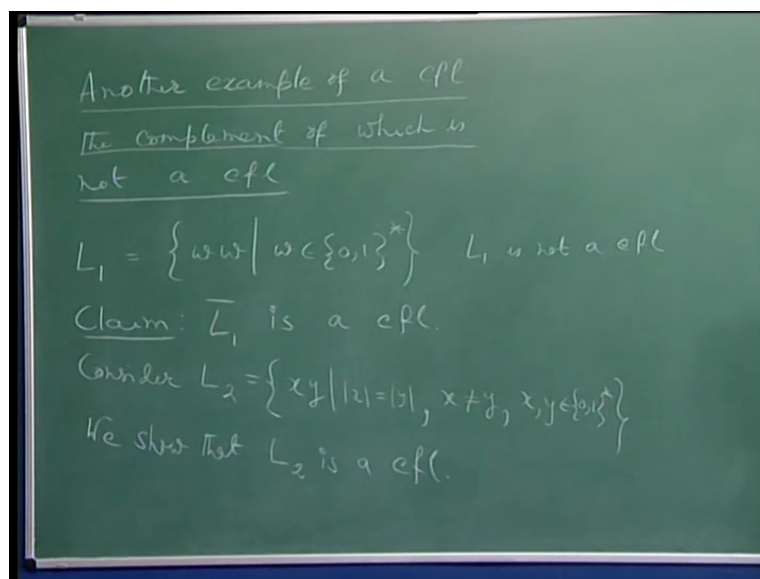 Another example of a cfl
The complement of which is
not a cfl
L₁ = { ww | w ∈ {0,1}* } L₁ is not a cfl
Claim: L̅₁ is a cfl.
Consider L₂ = { xy | |x| = |y|, x ≠ y, x, y ∈ {0,1}* }
We show that L₂ is a cfl.